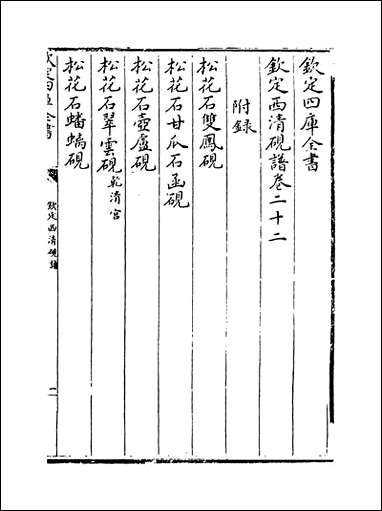 欽定四庫全書
欽定西清硯譜卷二十二
附錄
松花石雙鳳硯
松花石甘瓜石函硯
松花石壺盧硯
松花石翠雲硯乾清宮
松花石蟠螭硯
欽定四庫全書
欽定西清硯譜